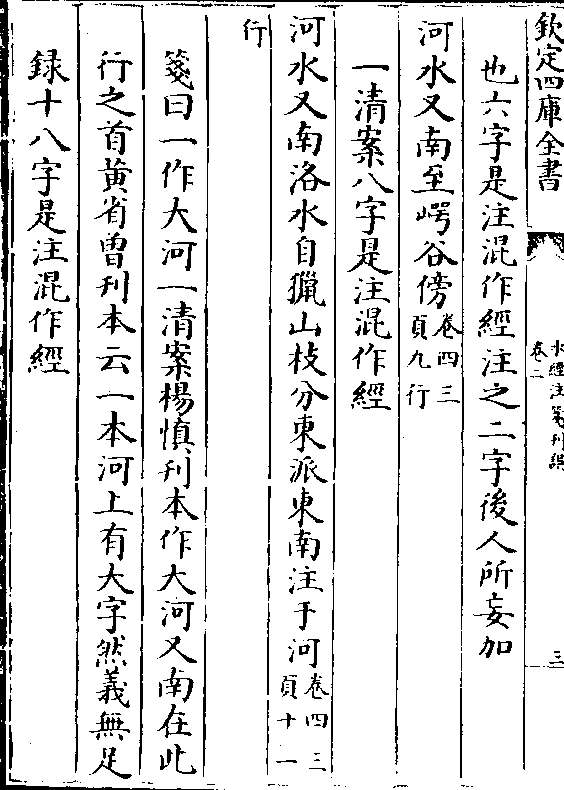 欽定四庫全書
水經注箋刊誤
卷二
三
也六字是注混作經注之二字後人所妄加
河水又南至崿谷傍卷四三頁九行
一清案八字是注混作經
河水又南洛水自獵山枝分東派東南注于河卷四三頁十一
行
箋曰一作大河一清案楊慎刋本作大河又南在此
行之首黄省曽刋本云一本河上有大字然義無足
録十八字是注混作經